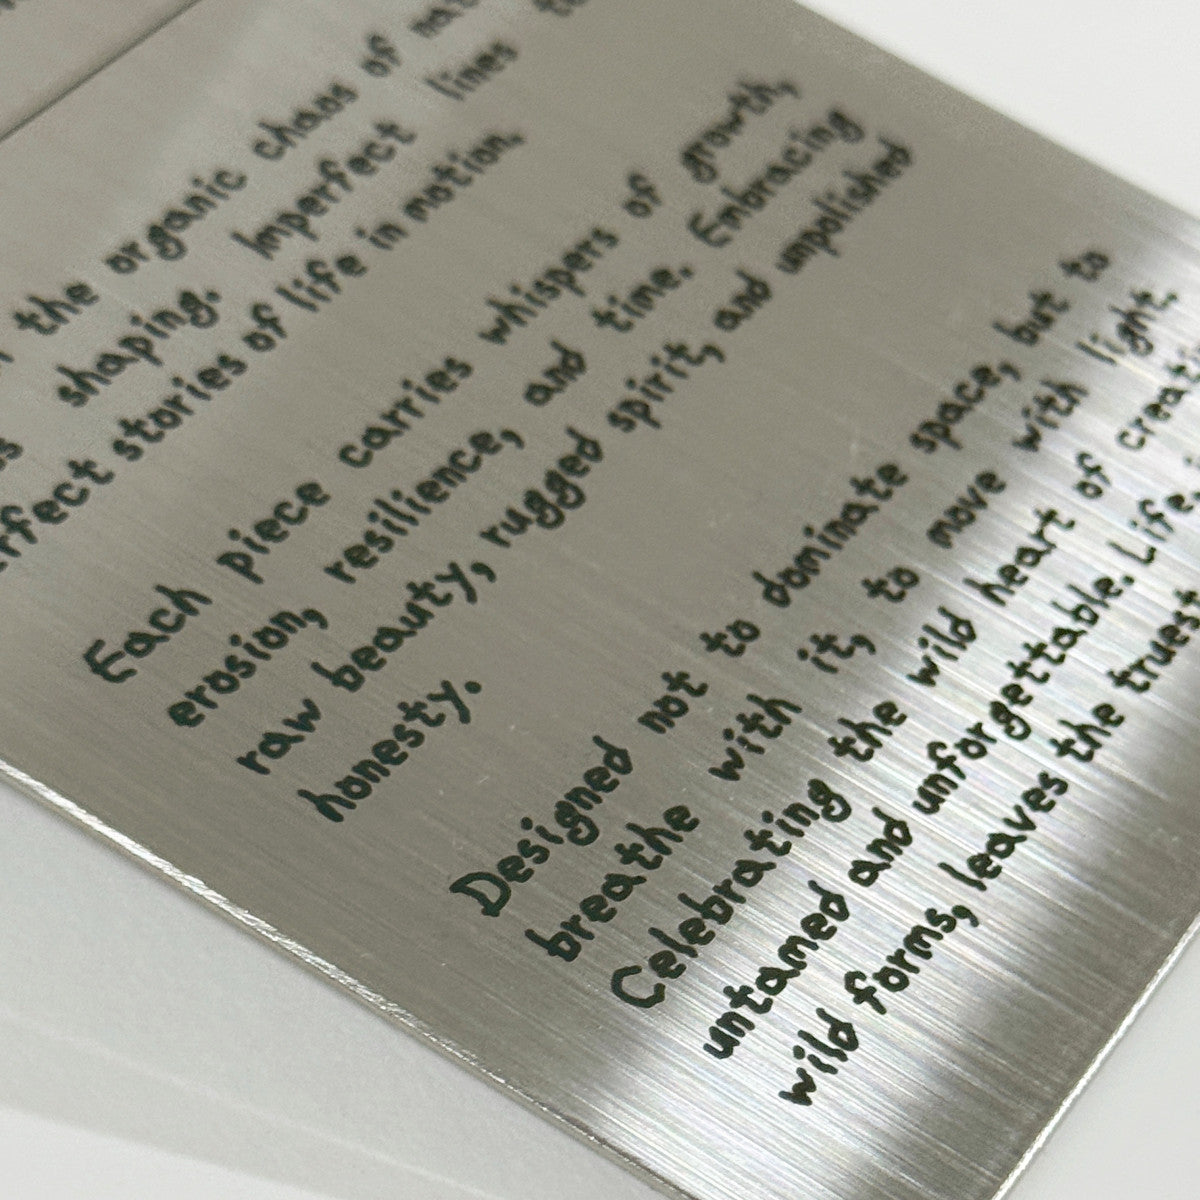 the organic chaos of
shaping. Imperfect lines
stories of life in motion.
Each piece carries whispers of growth,
erosion, resilience, and time. Embracing
raw beauty, rugged spirit, and unpolished
honesty.
Designed not to dominate space, but to
breathe with it, to move with light.
Celebrating the wild heart of
untamed and unforgettable. Life,
wild forms, leaves the truest